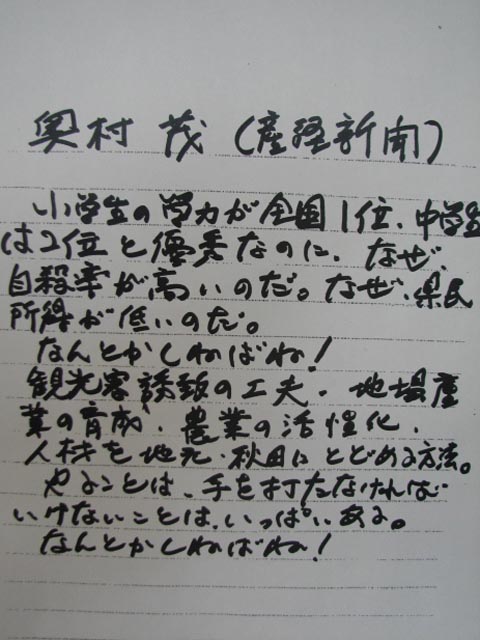 奥村 茂 (産経新聞)
小学生の学力が全国1位、中学生
は2位と優秀なのに、なぜ、
自殺率が高いのだ。なぜ、県民
所得が低いのだ。
なんとかしねばね!
観光客誘致の工夫、地場産
業の育成、農業の活性化、
人材を地元・秋田にとどめる方法。
やることは、手を打たなければ
いけないことは、いっぱいある。
なんとかしねばね!